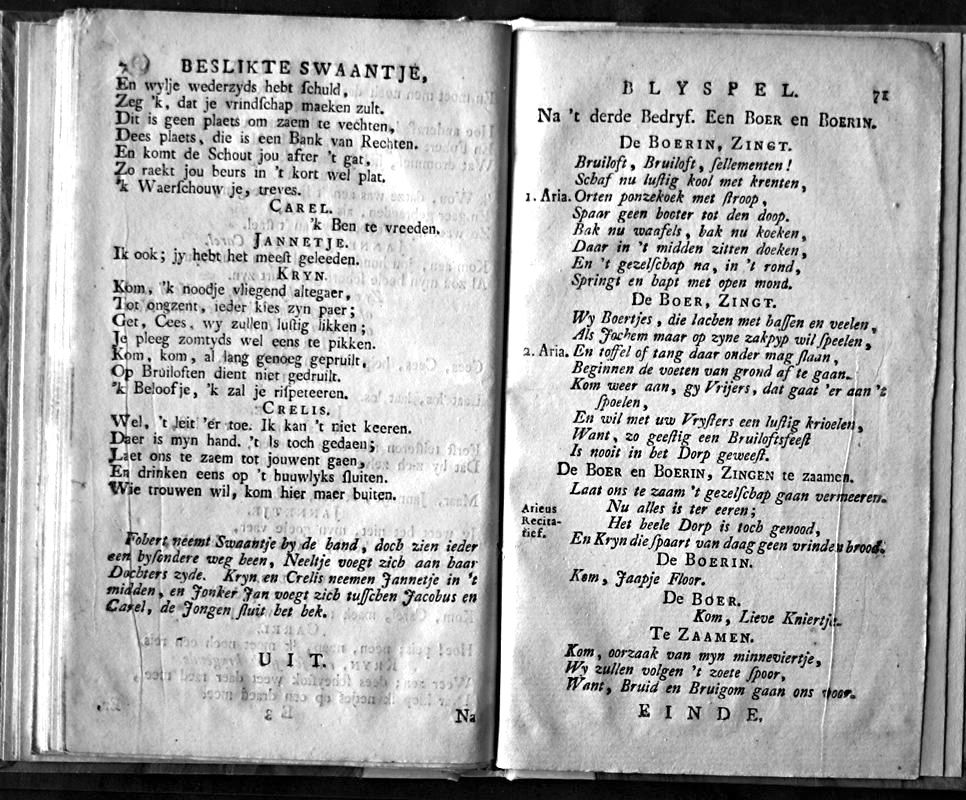 BESLIKTE SWAANTJE,
En wylje wederzyds hebt ſchuld,
Zeg 'k, dat je vrindſchap maeken zult.
Dit is geen plaets om zaem te vechten,
Dees plaets, die is een Bank van Rechten.
En komt de Schout jou after 't gat,
Zo raekt jou beurs in 't kort wel plat.
'k Waerſchouw je, treves.
CAREL.
'k Ben te vreeden.
JANNETJE.
Ik ook; jy hebt het meeſt geleeden.
KRYN.
Kom, 'k noodje vliegend altegaer,
Tot ongzent, ieder kies zyn paer;
Get, Cees, wy zullen luſtig likken;
Je pleeg zomtyds wel eens te pikken.
Kom, kom, al lang genoeg gepruilt,
Op Bruiloften dient niet gedruilt.
'k Beloofje, 'k zal je riſpeteeren.
CRELIS.
Wel, 't leit 'er toe. Ik kan 't niet keeren.
Daer is myn hand. 't Is toch gedaen;
Laet ons te zaem tot jouwent gaen,
En drinken eens op 't huuwlyks ſluiten.
Wie trouwen wil, kom hier maer buiten.
Fobert neemt Swaantje by de hand, doch zien ieder
een byſondere weg been, Neeltje voegt zich aan haar
Dochters zyde. Kryn en Crelis neemen Jannetje in 't
midden, en Jonker Jan voegt zich tuſſchen Jacobus en
Carel, de Jongen ſluit het hek.
UIT.
E 3
Na
BLYSPEL. 71
Na 't derde Bedryf. Een BOER en BOERIN.
De BOERIN, ZINGT.
Bruiloft, Bruiloft, ſellementen!
Schaf nu luſtig kool met krenten,
1. Aria. Orten ponzekoek met ſtroop,
Spaar geen booter tot den doop.
Bak nu waafels, bak nu koeken,
Daar in 't midden zitten doeken,
En 't gezelſchap na, in 't rond,
Springt en hapt met open mond.
De BOER, ZINGT.
Wy Boertjes, die lachen met baſſen en veelen,
Als Jochem maar op zyne zakpyp wil ſpeelen,
2. Aria. En toffel of tang daar onder mag ſlaan,
Beginnen de voeten van grond af te gaan.
Kom weer aan, gy Vrijers, dat gaat 'er aan 't
ſpoelen,
En wil met uw Vryſters een luſtig krioelen,
Want, zo geeſtig een Bruiloftsfeeſt
Is nooit in het Dorp geweeſt.
De BOER en BOERIN, ZINGEN te zaamen.
Laat ons te zaam 't gezelſchap gaan vermeeren.
Arieus Nu alles is ter eeren;
Recita- Het heele Dorp is toch genood,
tief. En Kryn die ſpaart van daag geen vrinden brood.
De BOERIN.
Kom, Jaapje Floor.
De BOER.
Kom, Lieve Kniertje.
Te ZAAMEN.
Kom, oorzaak van myn minneviertje,
Wy zullen volgen 't zoete ſpoor,
Want, Bruid en Bruigom gaan ons voor.
EINDE.